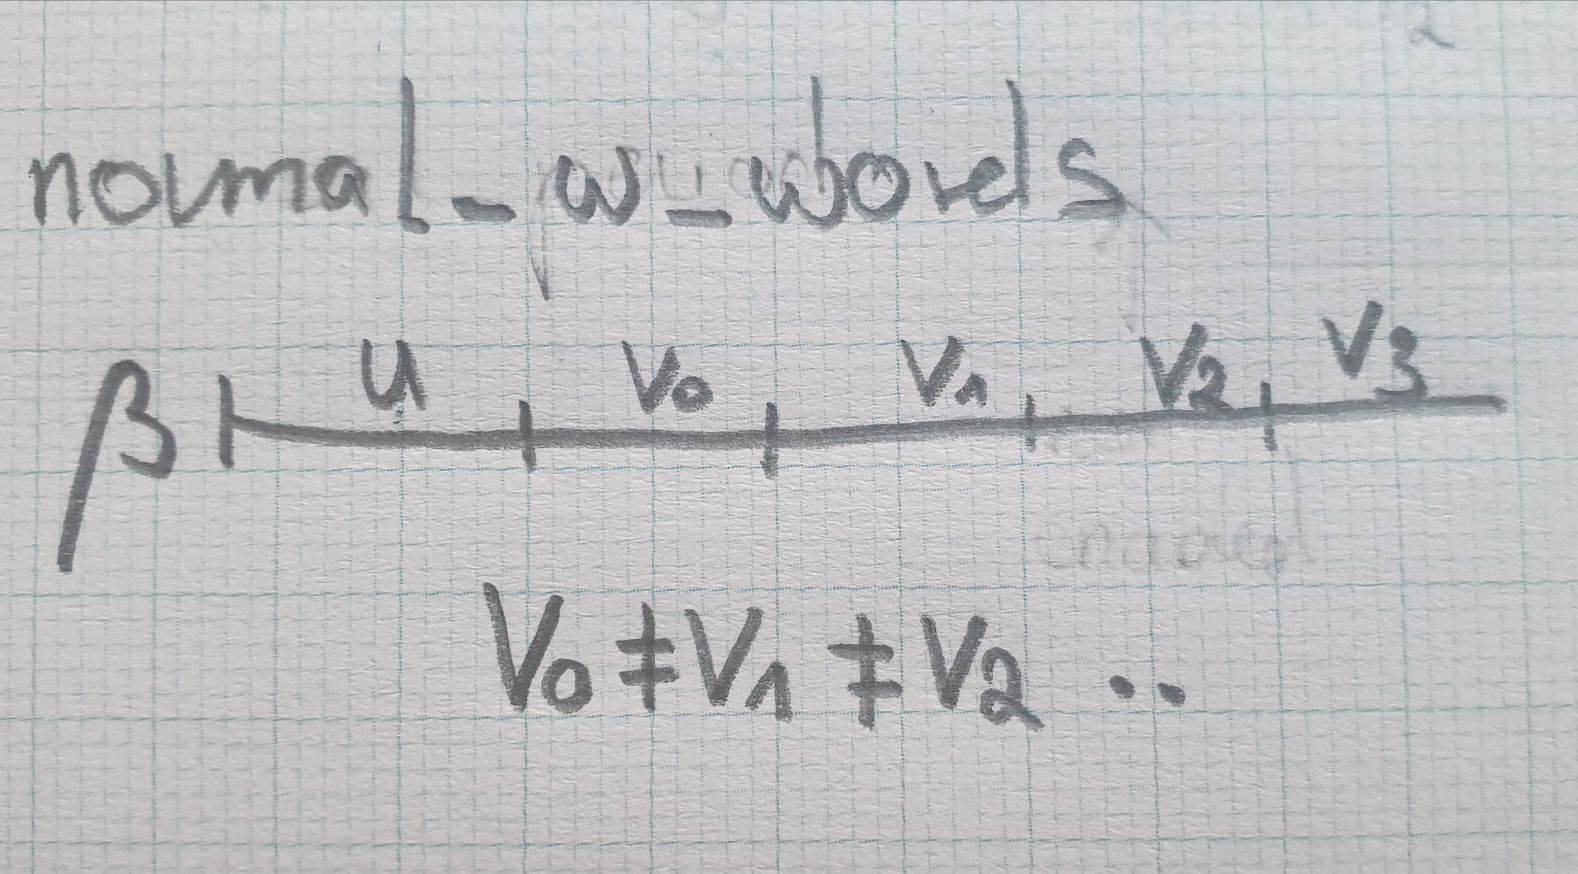 2
normal_ω_words
u v₀ v₁ v₂ v₃
β
v₀ ≠ v₁ ≠ v₂ ..